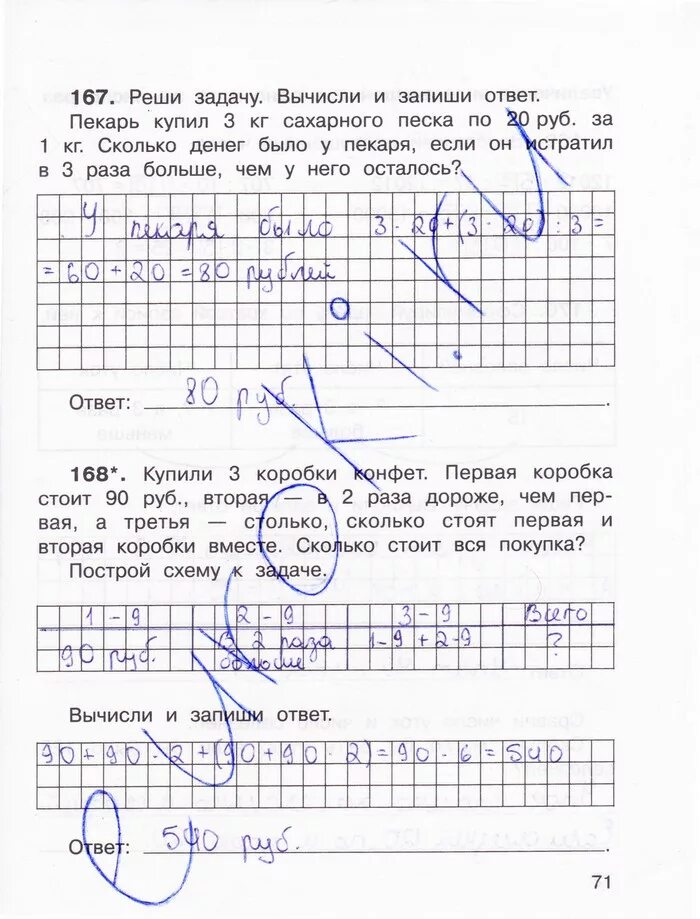 167. Реши задачу. Вычисли и запиши ответ.
Пекарь купил 3 кг сахарного песка по 20 руб. за
1 кг. Сколько денег было у пекаря, если он истратил
в 3 раза больше, чем у него осталось?
У пекаря было 3 · 20 + (3 · 20) : 3 =
= 60 + 20 = 80 рублей
Ответ: 80 руб.
168*. Купили 3 коробки конфет. Первая коробка
стоит 90 руб., вторая — в 2 раза дороже, чем пер-
вая, а третья — столько, сколько стоят первая и
вторая коробки вместе. Сколько стоит вся покупка?
Построй схему к задаче.
1 – я 2 – я 3 – я Всего
90 руб. В 2 раза больше 1-я + 2-я ?
Вычисли и запиши ответ.
90 + 90 · 2 + (90 + 90 · 2) = 90 · 6 = 540
Ответ: 540 руб.
71